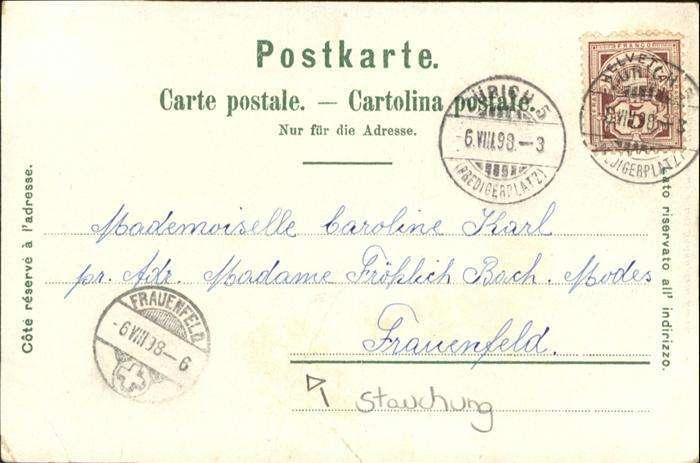 Postkarte.
Carte postale. — Cartolina postale.
Nur für die Adresse.
ZÜRICH 5
6.VIII.98.-3
(PREDIGERPLATZ)
FRANCO
HELVETIA
15
PREDIGERPLATZ)
Côté réservé à l'adresse.
Lato riservato all' indirizzo.
Mademoiselle Caroline Karl
pr. Adr. Madame Fröhlich Bach. Modes
Frauenfeld.
FRAUENFELD
-6 VIII 98-6
Stauchung